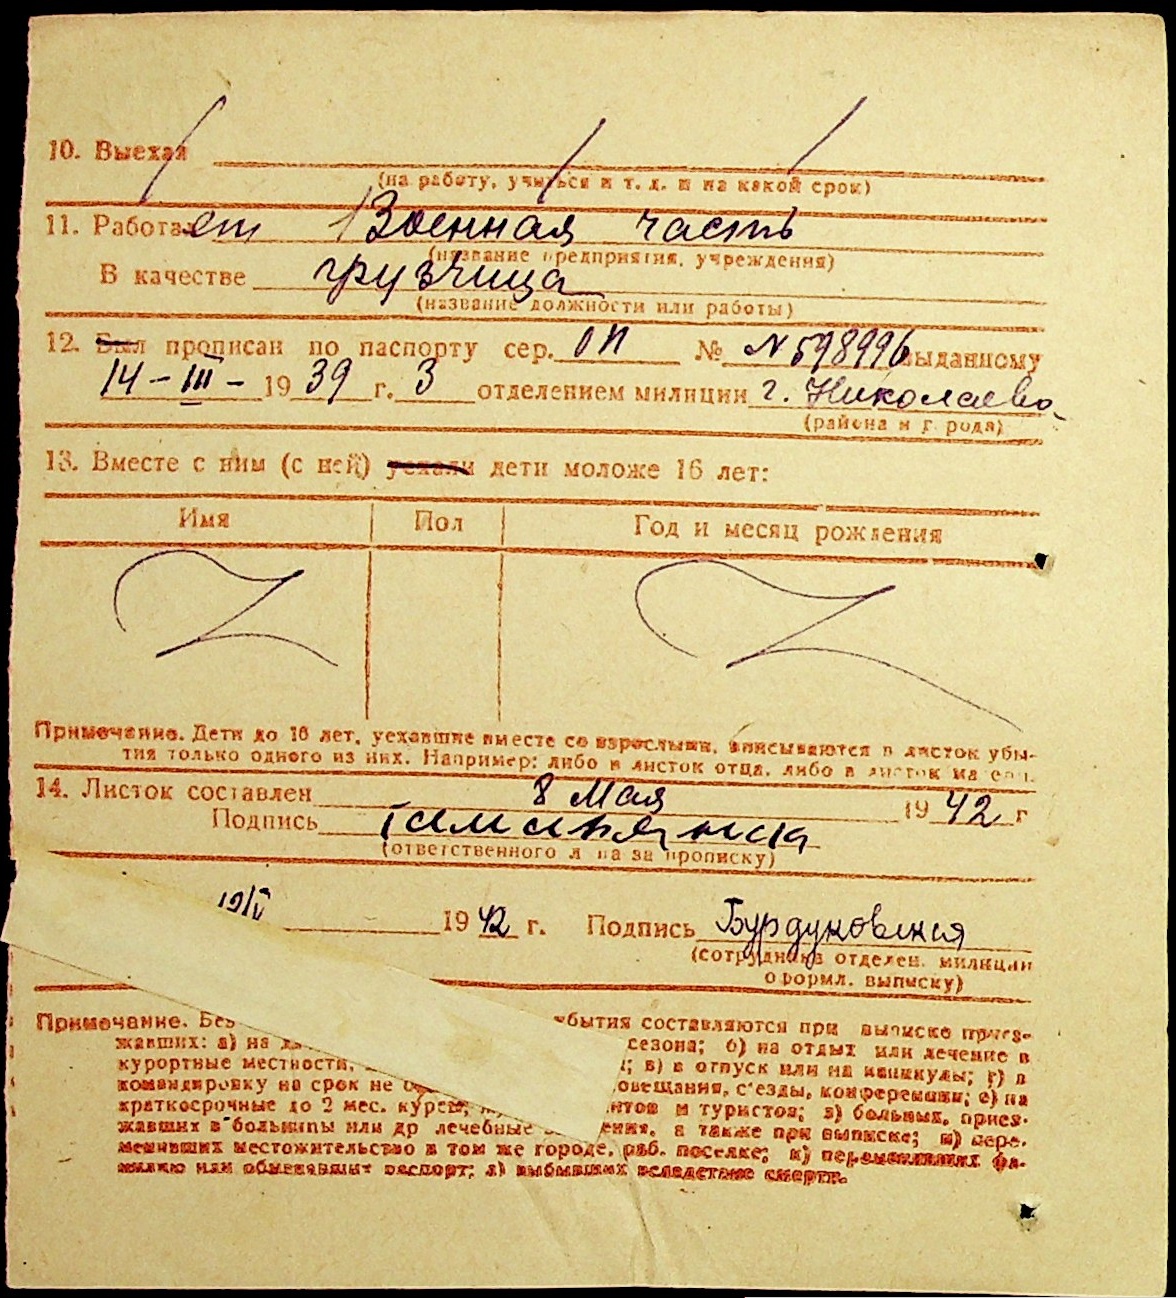 10. Выехал
(на работу, учиться и т. д. и на какой срок)
11. Работает Военная часть
(название предприятия, учреждения)
В качестве грузчица
(название должности или работы)
12. Был прописан по паспорту сер. ОП № N 598996 выданному
14 - III - 1939 г. 3 отделением милиции г. Николаева
(района и города)
13. Вместе с ним (с ней) уехали дети моложе 16 лет:
Имя Пол Год и месяц рождения
Примечание. Дети до 16 лет, уехавшие вместе со взрослыми, вписываются в листок убы-
тия только одного из них. Например: либо в листок отца, либо в листок матери.
14. Листок составлен 8 Мая 1942 г
Подпись
(ответственного лица за прописку)
19/V 1942 г. Подпись Бурдуковская
(сотрудника отделен. милиции
оформл. выписку)
Примечание. Без бытия составляются при выписке приез-
жавших: а) на да сезона; б) на отдых или лечение в
курортные местности, ; в) в отпуск или на каникулы; г) в
командировку на срок не б овещания, съезды, конференции; е) на
краткосрочные до 2 мес. курсы, нтов и туристов; з) больных, приез-
жавших в больницы или др лечебные ения, а также при выписке; и) пере-
менивших местожительство в том же городе, раб. поселке; к) переменивших фа-
милию или обменявших паспорт; л) выбывших вследствие смерти.